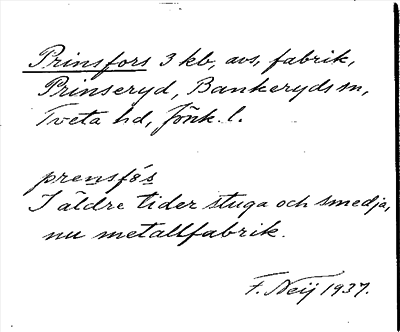 Prinsfors 3 kb, avs, fabrik,
Prinseryd, Bankeryds sn,
Tveta hd, Jönk. l.
prensfós
I äldre tider stuga och smedja,
nu metallfabrik.
F. Neij 1937.